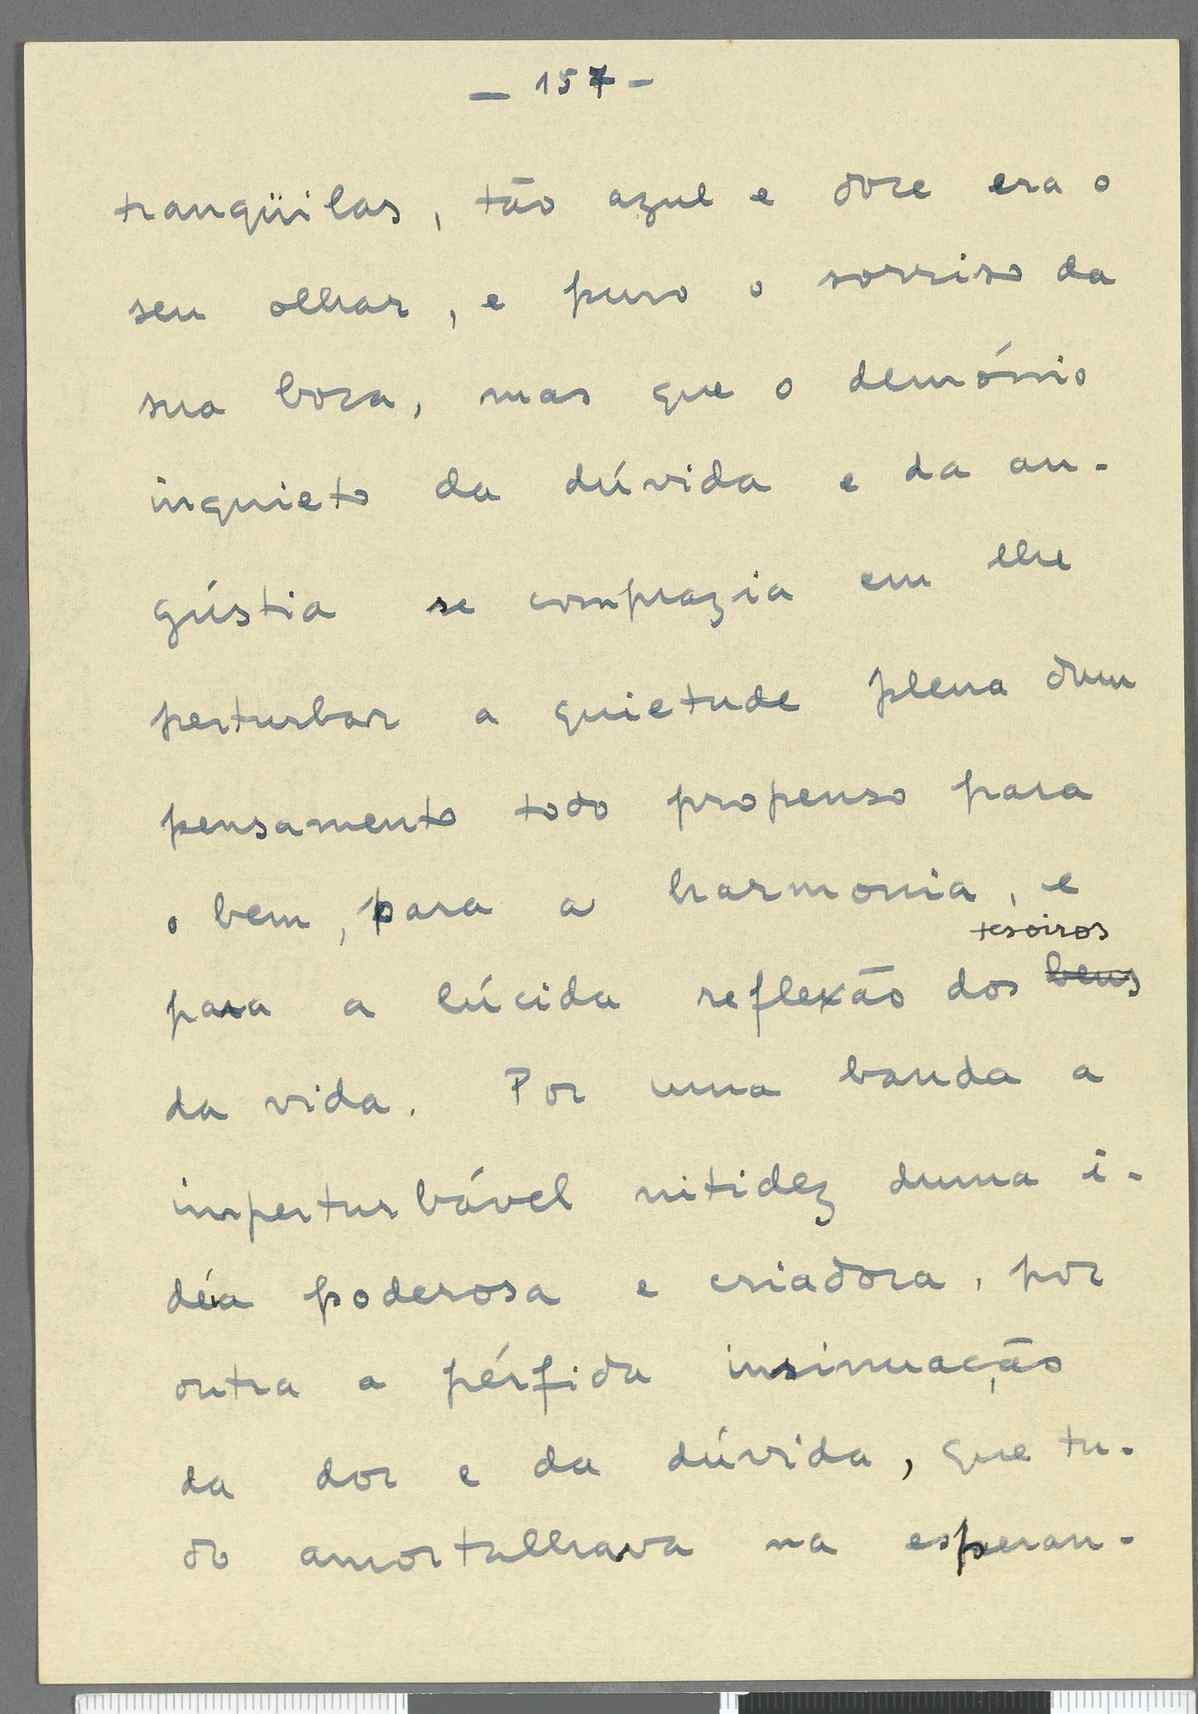 — 157 —
tranqüilas, tão azul e doce era o
seu olhar, e puro o sorriso da
sua boca, mas que o demónio
inquieto da dúvida e da an-
gústia se comprazia em lhe
perturbar a quietude plena dum
pensamento todo propenso para
o bem, para a harmonia, e
tesoiros
para a lúcida reflexão dos bens
da vida. Por uma banda a
imperturbável nitidez duma i-
déia poderosa e criadora, por
outra a pérfida insinuação
da dor e da dúvida, que tu-
do amortalhava na esperan-